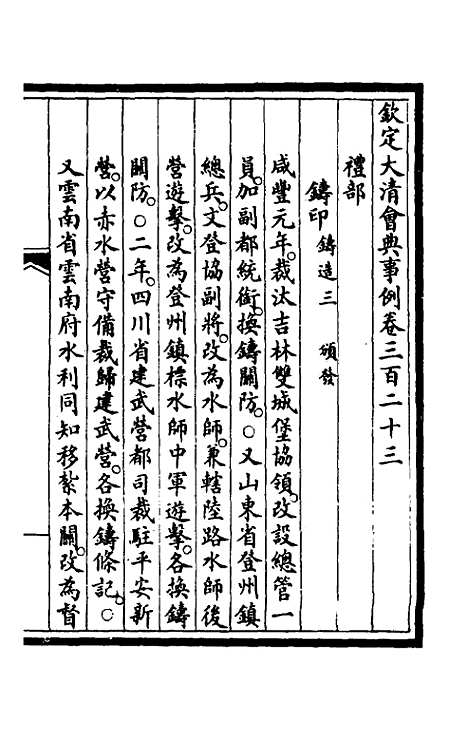 欽定大清會典事例卷三百二十三
禮部
鑄印鑄造三 頒發
咸豐元年。裁汰吉林雙城堡協領。改設總管一
員。加副都統銜。換鑄關防。○又山東省登州鎮
總兵。文登協副將。改為水師。兼轄陸路水師後
營遊擊。改為登州鎮標水師中軍遊擊。各換鑄
關防。○二年。四川省建武營都司裁駐平安新
營。以赤水營守備裁歸建武營。各換鑄條記。○
又雲南省雲南府水利同知移紮本關。改為督